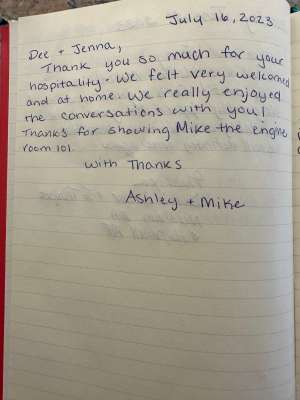 July 16, 2023
Dee + Jenna,
Thank you so much for your
hospitality. We felt very welcomed
and at home. We really enjoyed
the conversations with you!
Thanks for showing Mike the engine
room 101.
With Thanks
Ashley + Mike